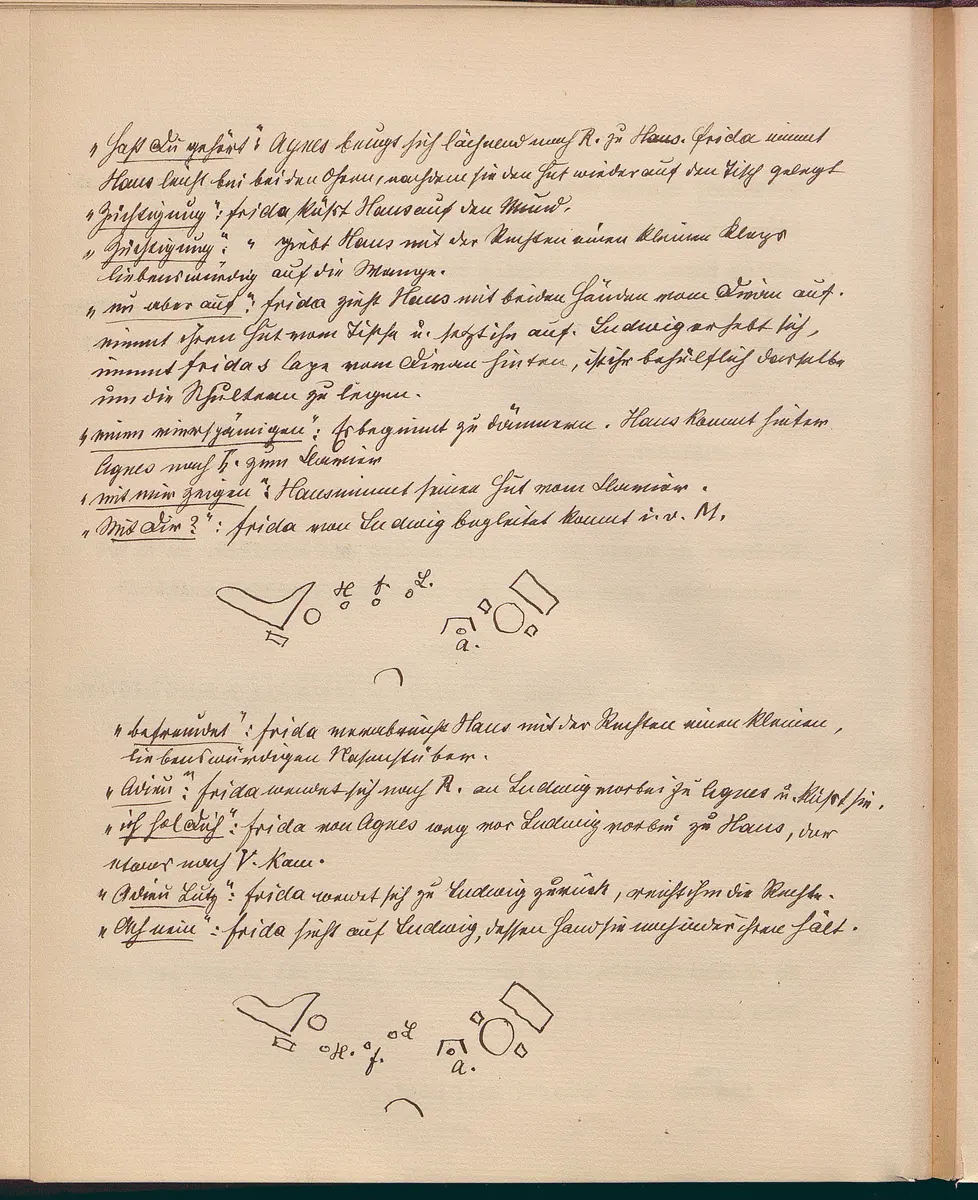 „Hast Du gehört“: Agnes beugt sich lächelnd nach R. zu Hans. Frida nimmt
Hans leicht bei beiden Ohren, nachdem sie den Hut wieder auf den Tisch gelegt
„Züchtigung“: Frida küßt Hans auf den Mund.
„Züchtigung“: „ giebt Hans mit der Rechten einen kleinen Klaps
liebenswürdig auf die Wange.
„nu aber auf“: Frida zieht Hans mit beiden Händen vom Divan auf.
nimmt ihren Hut vom Tische u. setzt ihn auf. Ludwig erhebt sich,
nimmt Fridas Cape vom Divan hinten, ist ihr behülflich dasselbe
um die Schultern zu legen.
„einen vierspännigen“: Es beginnt zu dämmern. Hans kommt hinter
Agnes nach L. zum Klavier
„mit mir zeigen“: Hans nimmt seinen Hut vom Klavier.
„Mit Dir?“: Frida von Ludwig begleitet kommt i. d. M.
H f. L.
a.
„befreundet“: Frida verabreicht Hans mit der Rechten einen kleinen,
liebenswürdigen Nasenstüber.
„Adieu“: Frida wendet sich nach R. an Ludwig vorbei zu Agnes u. küßt sie.
„ich hol Dich“: Frida von Agnes weg vor Ludwig vorbei zu Hans, der
etwas nach V. kam.
„Adieu Lutz“: Frida wendet sich zu Ludwig zurück, reicht ihm die Rechte.
„Ach nein“: Frida sieht auf Ludwig, dessen Hand sie noch in der ihren hält.
H. f. L
a.